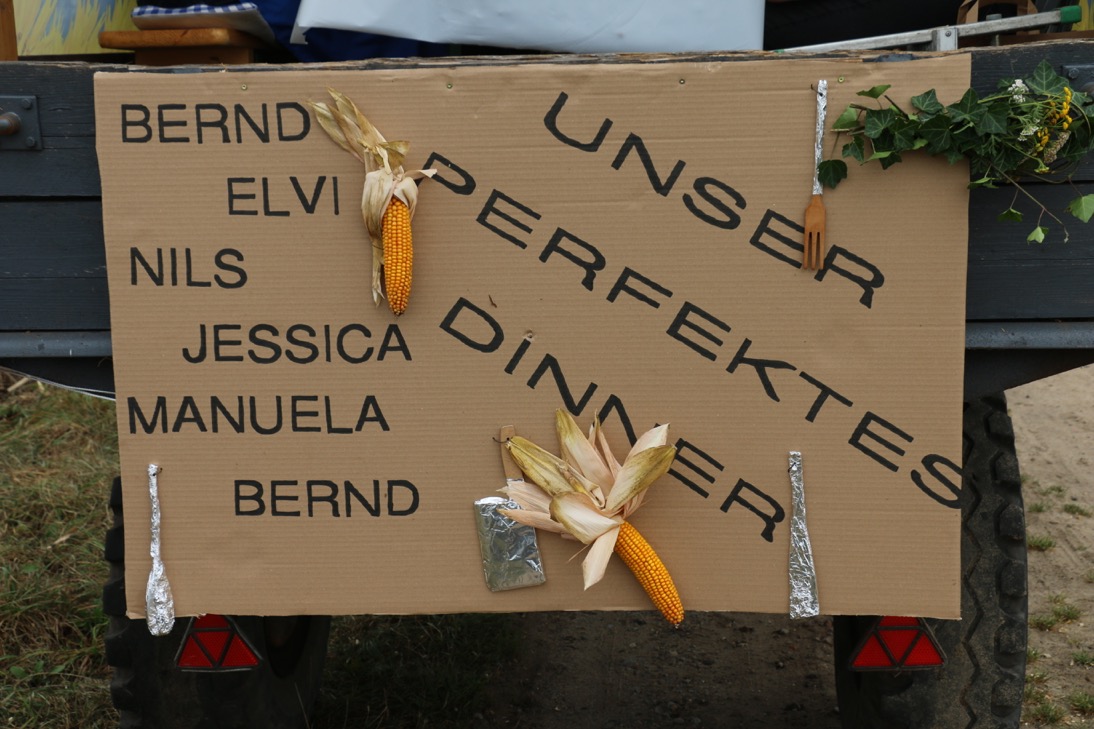 BERND
ELVI
NILS
JESSICA
MANUELA
BERND
UNSER
PERFEKTES
DiNNER